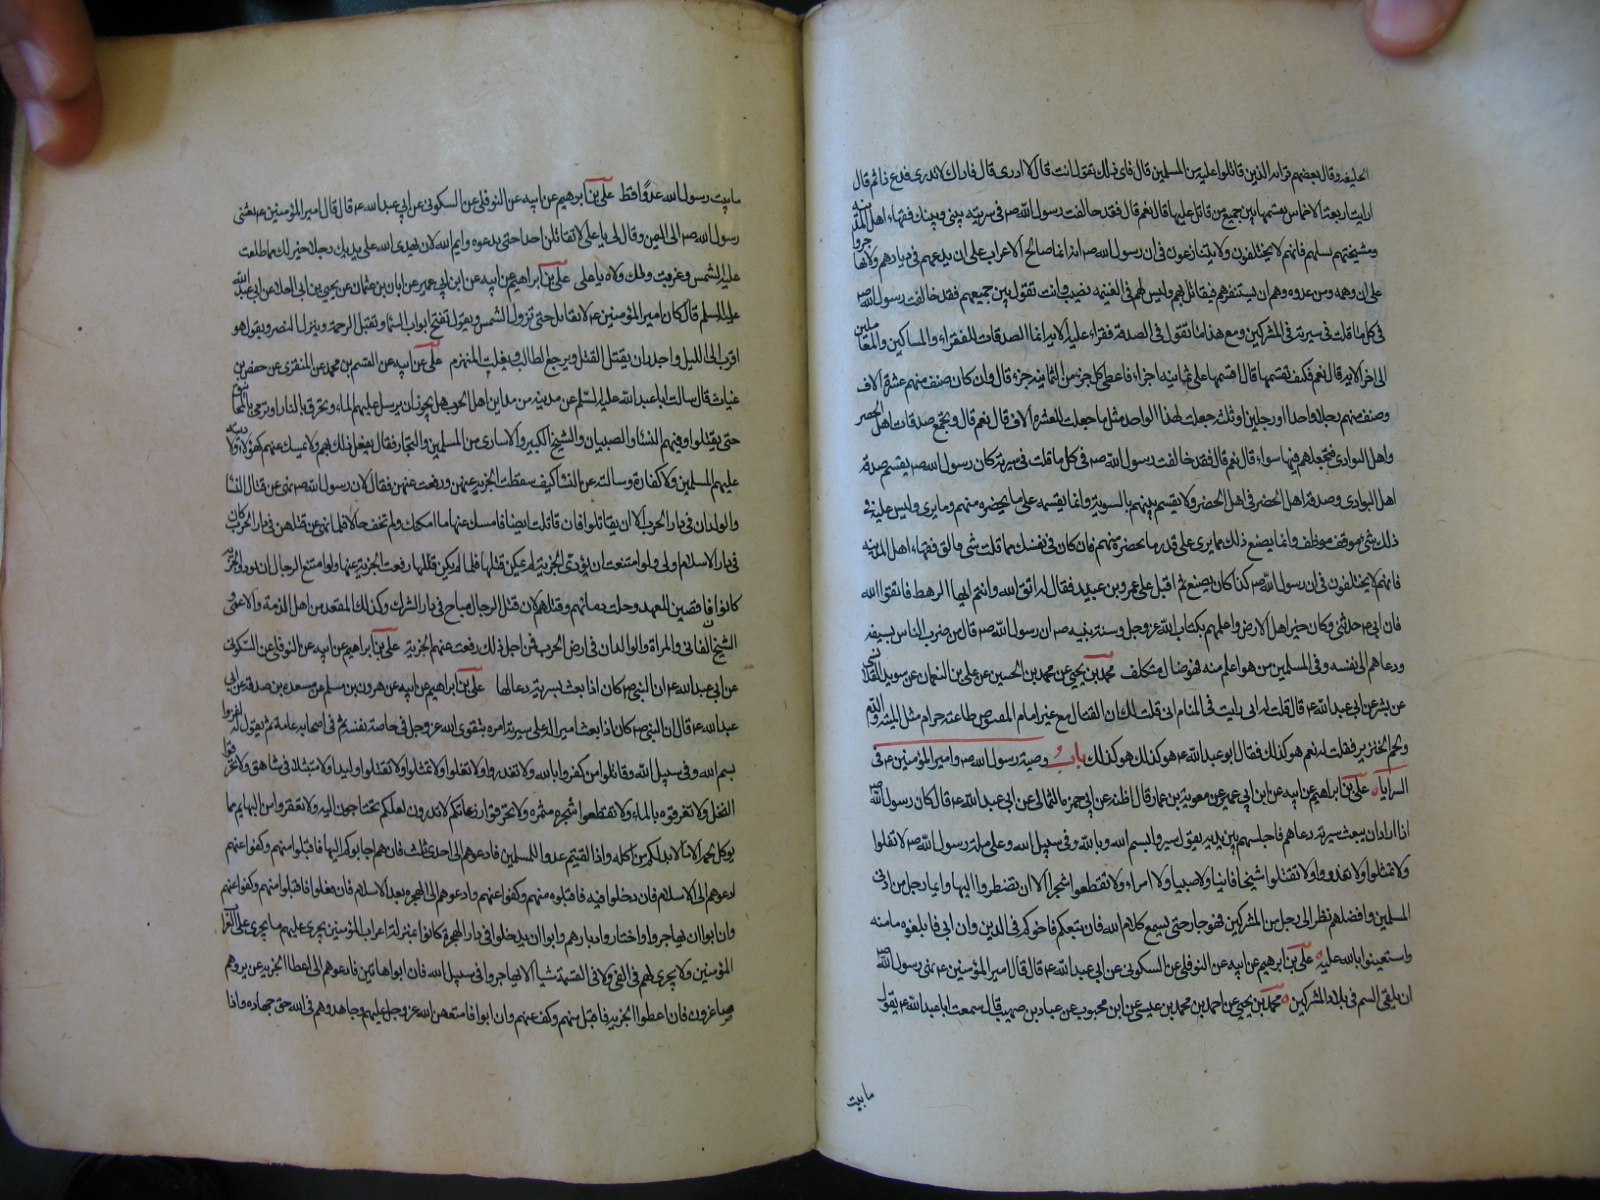 الخليفة وقال بعضهم قرابة الذين قاتلوا عليه من المسلمين قال فاي ذلك تقول انت قال لا ادري قال فاراك لا تدري فدع ذا ثم قال
ارايت اربعة الاخماس بقسمها بين جميع من قاتل عليها قال نعم قال فقد خالفت رسول الله ص في سيرته بيني وبينك فقهاء اهل المدينة
ومشيختهم سلهم فانهم لا يختلفون ولا يتنازعون في ان رسول الله ص انه انما صالح الاعراب على ان يدعهم في ديارهم ولا يهاجروا
على ان دهمه من عدوه دهم ان يستنفرهم فيقاتل بهم وليس لهم في الغنيمة نصيب وانت تقول بين جميعهم فقد خالفت رسول الله ص
في كل ما قلت في سيرته في المشركين ومع هذا ما تقول في الصدقة فقراء عليه الاية انما الصدقات للفقراء والمساكين والعاملين
الى اخر الاية قال نعم فكيف تقسمها قال اقسمها على ثمانية اجزاء فاعطي كل جزء من الثمانية جزء قال وان كان صنف منهم عشرة الاف
وصنف منهم رجلا واحدا او رجلين او ثلثة جعلت لهذا الواحد مثل ما جعلت للعشرة الاف قال نعم قال وتجمع صدقات اهل الحضر
واهل البوادي فتجعلهم فيها سواء قال نعم قال فقد خالفت رسول الله ص في كل ما قلت في سيرته كان رسول الله ص يقسم صدقة
اهل البوادي وصدقة اهل الحضر في اهل الحضر ولا يقسم بينهم بالسوية وانما يقسمه على ما يحضره منهم وما يرى وليس عليه في
ذلك شيء موقت موظف وانما يصنع ذلك بما يرى على قدر ما يحضره منهم فان كان في نفسك مما قلت شيء فالق فقهاء اهل المدينة
فانهم لا يختلفون في ان رسول الله ص كذا كان يصنع ثم اقبل على عمرو بن عبيد فقال له اتق الله وانتم ايها الرهط فاتقوا الله
فان ابي ع حدثني وكان خير اهل الارض واعلمهم بكتاب الله عز وجل وسنة نبيه ص ان رسول الله ص قال من ضرب الناس بسيفه
ودعاهم الى نفسه وفي المسلمين من هو اعلم منه فهو ضال متكلف محمد بن يحيى عن محمد بن الحسين عن علي بن النعمان عن سويد القلانسي
عن بشر عن ابي عبد الله ع قال قلت له اني رايت في المنام اني قلت لك ان القتال مع غير امام المفروض طاعته حرام مثل الميتة والدم
ولحم الخنزير فقلت لي نعم هو كذلك فقال ابو عبد الله ع هو كذلك هو كذلك باب وصية رسول الله ص وامير المؤمنين ع في
السرايا علي بن ابراهيم عن ابيه عن ابن ابي عمير عن معوية بن عمار قال اظنه عن ابي حمزة الثمالي عن ابي عبد الله ع قال كان رسول الله ص
اذا اراد ان يبعث سرية دعاهم فاجلسهم بين يديه ثم يقول سيروا بسم الله وبالله وفي سبيل الله وعلى ملة رسول الله ص لا تغلوا
ولا تمثلوا ولا تغدروا ولا تقتلوا شيخا فانيا ولا صبيا ولا امراة ولا تقطعوا شجرا الا ان تضطروا اليها وايما رجل من ادنى
المسلمين وافضلهم نظر الى رجل من المشركين فهو جار حتى يسمع كلام الله فان تبعكم فاخوكم في الدين وان ابى فابلغوه مامنه
واستعينوا بالله عليه علي بن ابراهيم عن ابيه عن النوفلي عن السكوني عن ابي عبد الله ع قال قال امير المؤمنين ع نهى رسول الله ص
ان يلقى السم في بلاد المشركين محمد بن يحيى عن احمد بن محمد بن عيسى عن ابن محبوب عن عباد بن صهيب قال سمعت ابا عبد الله ع يقول
ما بيت
ما بيت رسول الله عدوا قط علي بن ابرهيم عن ابيه عن النوفلي عن السكوني عن ابي عبد الله ع قال قال امير المؤمنين ع بعثني
رسول الله ص الى اليمن وقال لي يا علي لا تقاتلن احدا حتى تدعوه وايم الله لان يهدي الله على يديك رجلا خير لك مما طلعت
عليه الشمس وغربت ولك ولاه يا علي علي بن ابراهيم عن ابيه عن ابن ابي عمير عن ابان بن عثمان عن يحيى بن ابي العلا عن ابي عبد الله
عليه السلم قال كان امير المؤمنين ع لا يقاتل حتى تزول الشمس ويقول تفتح ابواب السماء وتقبل الرحمة وينزل النصر ويقول هو
اقرب الى الليل واجدر ان يقتل القتل ويرجع الطالب ويفلت المنهزم علي عن ابيه عن القسم بن محمد عن المنقري عن حفص بن
غياث قال سالت ابا عبد الله عليه السلم عن مدينة من مداين اهل الحرب هل يجوز ان يرسل عليهم الماء وتحرق بالنار او ترمى بالمجانيق
حتى يقتلوا وفيهم النساء والصبيان والشيخ الكبير والاسارى من المسلمين والتجار فقال يفعل ذلك بهم ولا يمسك عنهم لهؤلاء ولا دية
عليهم للمسلمين ولا كفارة وسالته عن النساء كيف سقطت الجزية عنهن ورفعت عنهن فقال لان رسول الله ص نهى عن قتال النساء
والولدان في دار الحرب الا ان يقاتلوا فان قاتلت ايضا فامسك عنها ما امكنك ولم تخف خللا فلما نهى عن قتلهن في دار الحرب كان
في دار الاسلام اولى ولو امتنعت ان يؤدي الجزية لم يمكن قتلها فلما لم يمكن قتلها رفعت الجزية عنها ولو امتنع الرجال ان يودوا الجزية
كانوا ناقضين للعهد وحلت دمائهم وقتلهم لان قتل الرجال مباح في دار الشرك وكذلك المقعد من اهل الذمة والاعمى و
الشيخ الفاني والمراة والوالدان في ارض الحرب فمن اجل ذلك رفعت عنهم الجزية علي بن ابراهيم عن ابيه عن النوفلي عن السكوني
عن ابي عبد الله ع ان النبي ص كان اذا بعث بسرية دعا لها علي بن ابراهيم عن ابيه عن هرون بن مسلم عن مسعدة بن صدقة عن ابي
عبد الله ع قال ان النبي ص كان اذا بعث اميرا له على سرية امره بتقوى الله عز وجل في خاصة نفسه ثم في اصحابه عامة ثم يقول له اغزوا
بسم الله وفي سبيل الله وقاتلوا من كفروا بالله ولا تغدروا ولا تغلوا ولا تمثلوا ولا تقتلوا وليدا ولا متبتلا في شاهق ولا تحرقوا
النخل ولا تغرقوه بالماء ولا تقطعوا شجره مثمره ولا تحرقوا زرعا لانكم لا تدرون لعلكم تحتاجون اليه ولا تعقروا من البهايم مما
يوكل لحمه الا ما لا بد لكم من اكله واذا لقيتم عدوا للمسلمين فادعوهم الى احدى ثلث فان هم اجابوكم اليها فاقبلوا منهم وكفوا عنهم
ادعوهم الى الاسلام فان دخلوا فيه فاقبلوه منهم وكفوا عنهم وادعوهم الى الهجرة بعد الاسلام فان فعلوا فاقبلوا منهم وكفوا عنهم
وان ابوا ان يهاجروا واختاروا ديارهم وابوا ان يدخلوا في دار الهجرة كانوا بمنزلة اعراب المؤمنين يجري عليهم ما يجري على اعراب
المؤمنين ولا يجري لهم في الفيء ولا في القسمة شيئا الا ان يهاجروا في سبيل الله فان ابوا هاتين فادعوهم الى اعطاء الجزية عن يد وهم
صاغرون فان اعطوا الجزية فاقبل منهم وكف عنهم وان ابوا فاستعن الله عز وجل عليهم وجاهدوهم في الله حق جهاده واذا